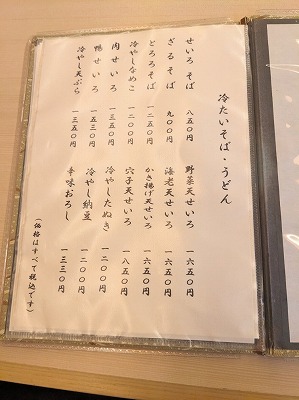 冷たいそば・うどん
せいろそば 八五〇円
ざるそば 九〇〇円
とろろそば 一二五〇円
冷やしなめこ 一二〇〇円
肉せいろ 一三五〇円
鴨せいろ 一五三〇円
冷やし天ぷら 一三五〇円
野菜天せいろ 一六五〇円
海老天せいろ 一六五〇円
かき揚げ天せいろ 一六五〇円
穴子天せいろ 一八五〇円
冷やしたぬき 一二〇〇円
冷やし納豆 一二〇〇円
辛味おろし 一三三〇円
(価格はすべて税込です)